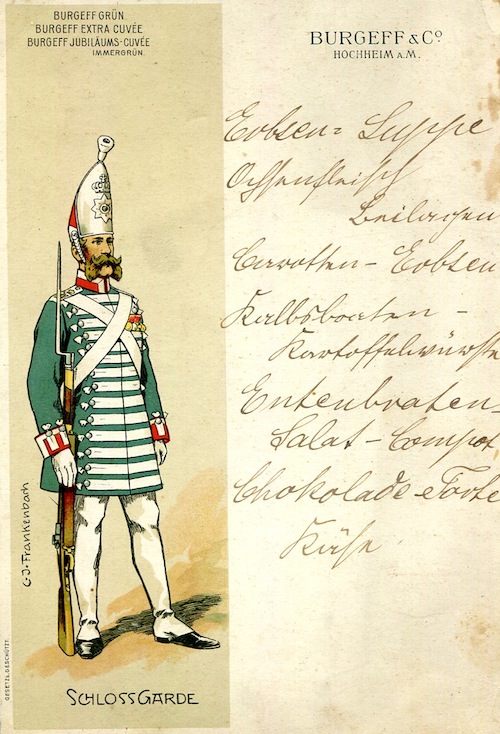 BURGEFF GRÜN.
BURGEFF EXTRA CUVÉE
BURGEFF JUBILÄUMS-CUVÉE
IMMERGRÜN.
BURGEFF & Cº
HOCHHEIM A.M.
Erbsen-Suppe
Ochsenfleisch
Beilagen
Carotten - Erbsen
Kalbsbraten -
Kartoffelwürste
Entenbraten
Salat - Compot
Chokolade-Torte
Käse
C.J. Frankenbach
GESETZL. GESCHÜTZT.
SCHLOSSGARDE